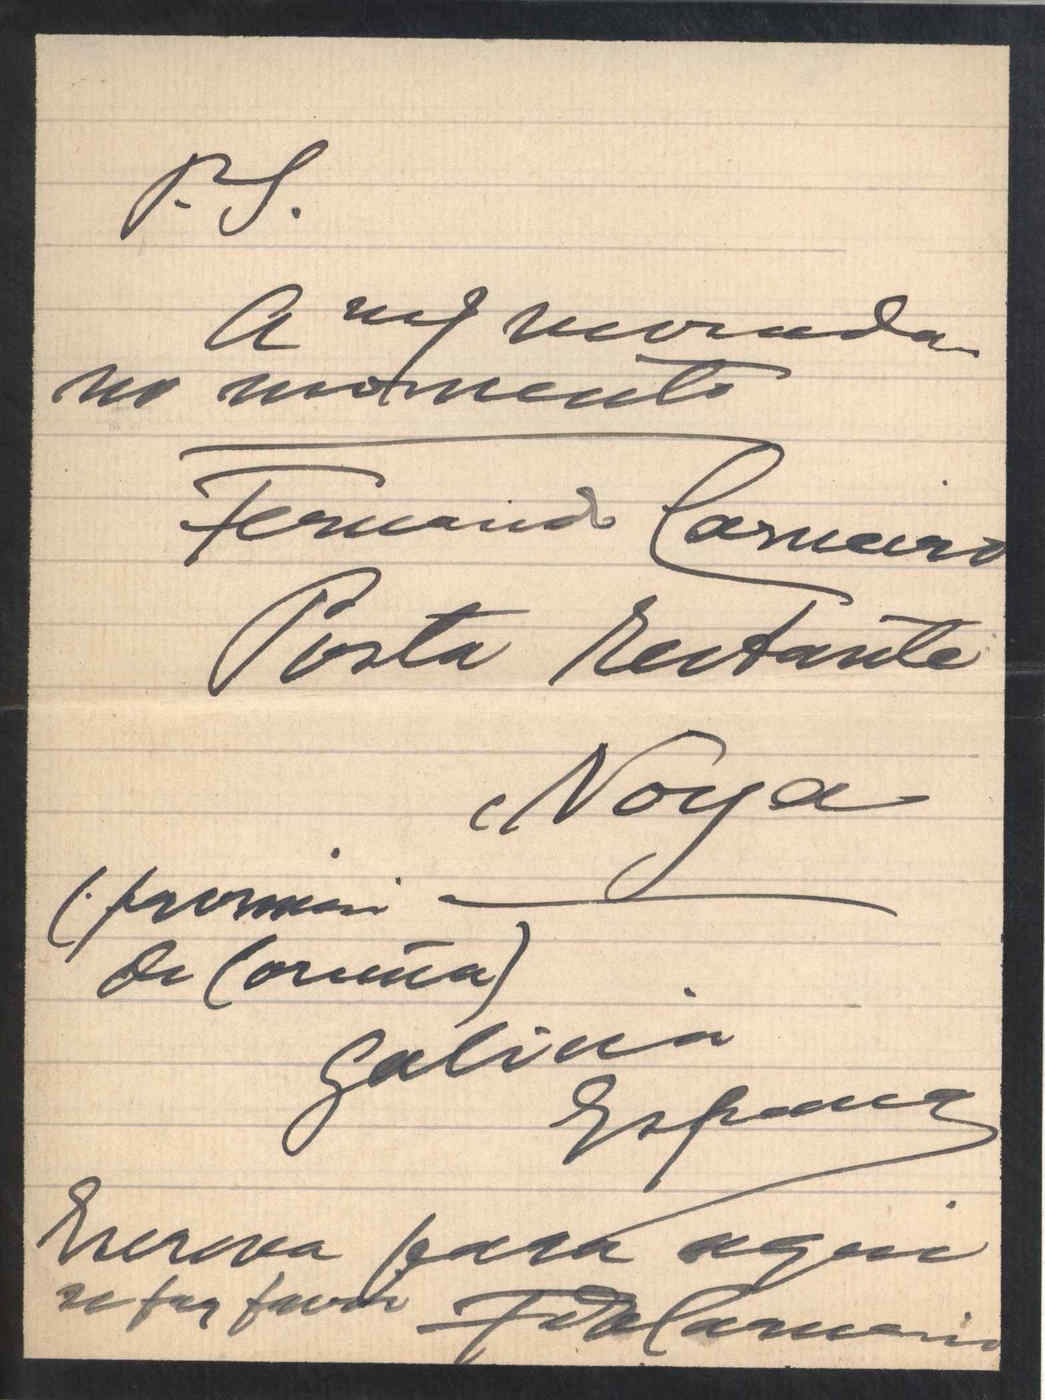 P.S.
A mª morada
no momento
Fernando Carneiro
Posta Restante
Noya
(provincia
de Coruña)
Galicia
Espana
Escreva para aqui
se faz favor FdoCarneiro